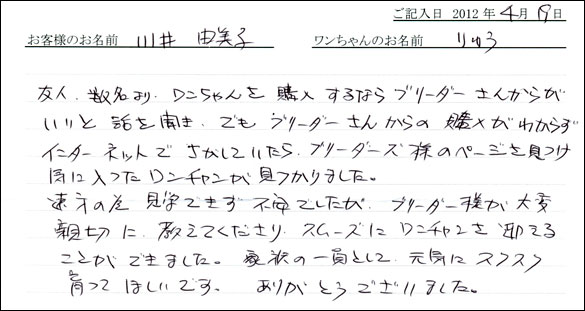 ご記入日 2012年4月19日
お客様のお名前 川井 由美子 ワンちゃんのお名前 りゅう
友人、数名より、ワンちゃんを購入するならブリーダーさんからが
いいと話を聞き、でもブリーダーさんからの購入がわからず
インターネットでさがしていたら、ブリーダーズ様のページを見つけ
気に入ったワンチャンが見つかりました。
遠方の為見学できず不安でしたが、ブリーダー様が大変
親切に、教えてくださり、スムーズにワンチャンを迎える
ことができました。家族の一員として、元気にスクスク
育ってほしいです。ありがとうございました。